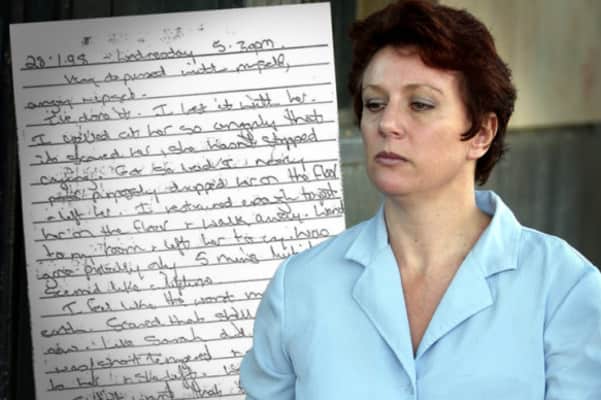 28.1.98 Wednesday 5.30pm.
Very depressed with myself,
angry & upset.
I've done it. I lost it with her.
I yelled at her so angrily that
it scared her, she hasn't stopped
crying. Got so bad I nearly
purposely dropped her on the floor
& left her. I restrained enough to put
her on the floor & walk away. Went
to my room & left her to cry. Was
gone probably only 5 mins but it
seemed like a lifetime
I feel like the worst mo
earth. Scared that she'll
now. Like Sarah did.
was short tempered
to her &
that